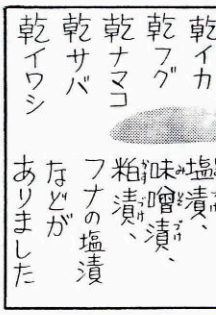 乾イカ
乾フグ
乾ナマコ
乾サバ
乾イワシ
塩漬、
味噌漬、
粕漬、
フナの塩漬
などが
ありました